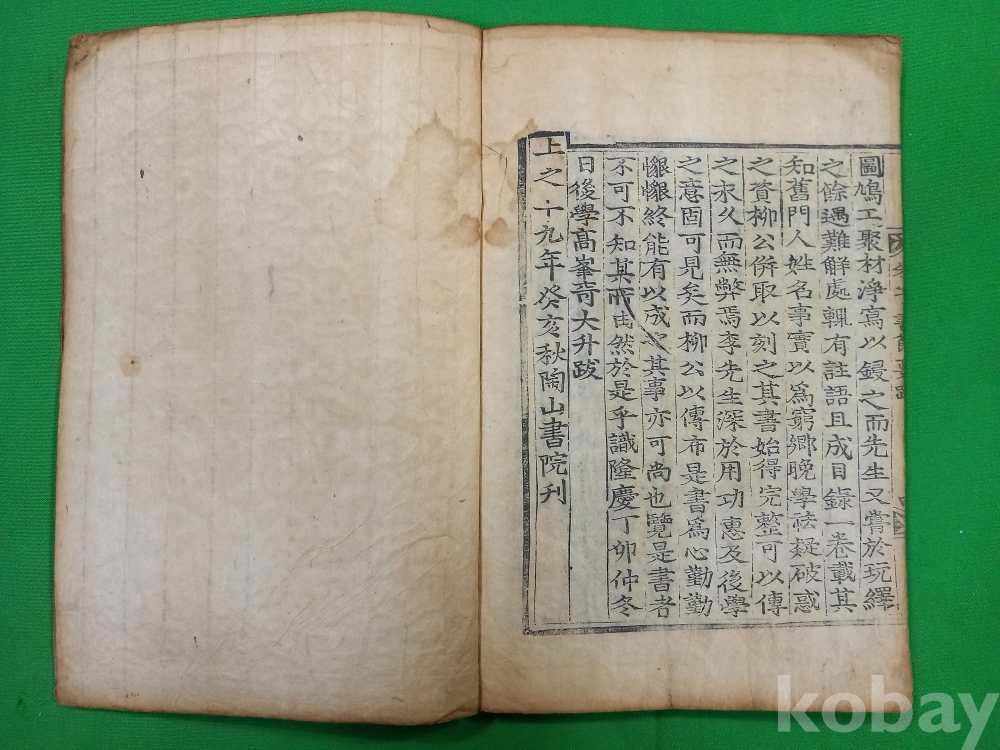 圖鳩工聚材淨寫以鋟之而先生又嘗於玩繹
之餘遇難解處輒有註語且成目錄一卷載其
知舊門人姓名事實以爲窮鄉晚學祛疑破惑
之資柳公併取以刻之其書始得完整可以傳
之永久而無弊焉李先生深於用功惠及後學
之意固可見矣而柳公以傳布是書爲心勤勤
懇懇終能有以成之其事亦可尚也覽是書者
不可不知其所由然於是乎識隆慶丁卯仲冬
日後學高峯奇大升跋
上之十九年癸亥秋陶山書院刊
kobay